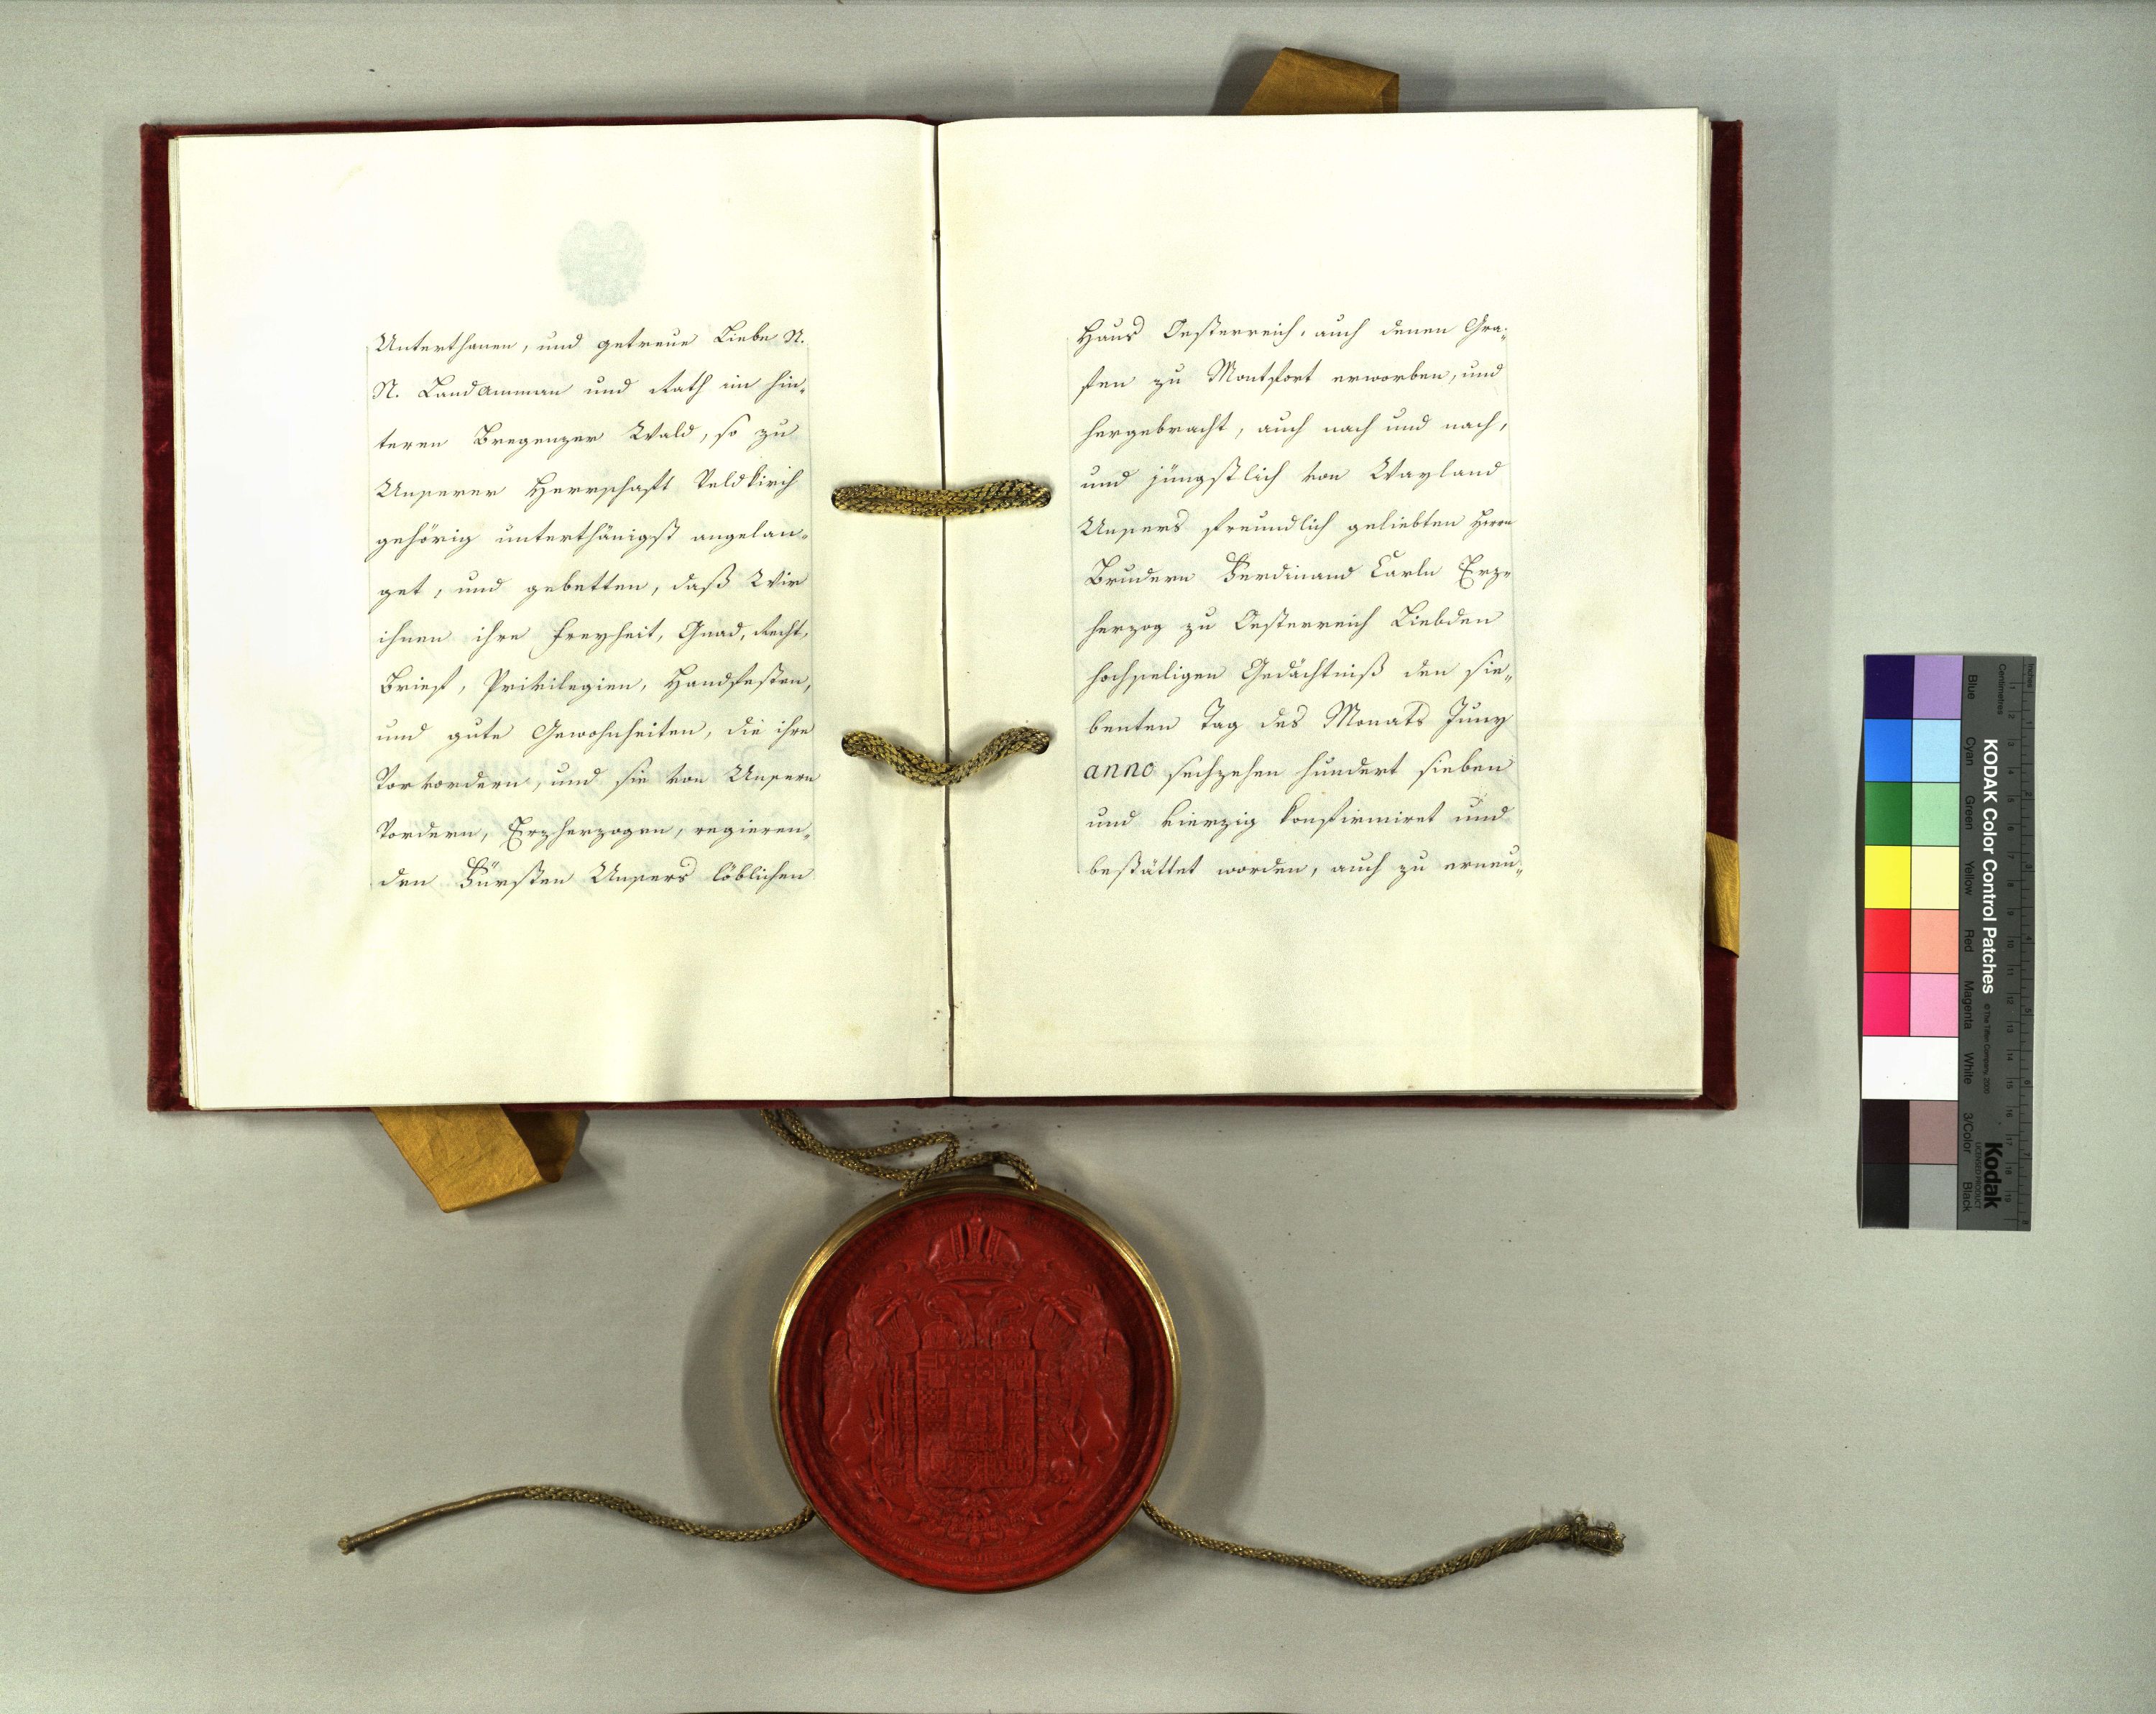 Unterthanen, und getreue Liebe N.
N. Landamman und Rath im hin-
teren Bregenzer Wald, so zu
Unserer Herrschaft Veldkirch
gehörig unterthänigst angelan-
get, und gebetten, daß Wir
ihnen ihre Freyheit, Gnad, Recht,
Brief, Privilegien, Handfesten,
und gute Gewohnheiten, die ihre
Vorvordern, und sie von Unsern
Vordern, Erzherzogen, regieren-
den Fürsten Unsers löblichen
Haus Oesterreich, auch denen Gra-
fen zu Montfort erworben, und
hergebracht, auch nach und nach,
und jüngstlich von Wayland
Unsers freundlich geliebten Herrn
Brudern Ferdinand Carln Erz-
herzog zu Oesterreich Liebden
hochseeligen Gedächtniß den sie-
benten Tag des Monats Juny
anno sechzehen hundert sieben
und vierzig konfirmiret und
bestättet worden, auch zu erneu-
KODAK Color Control Patches
Kodak
LICENSED PRODUCT
© The Tiffen Company, 2000
Inches
Centimetres
Blue
Cyan
Green
Yellow
Red
Magenta
White
3/Color
Black